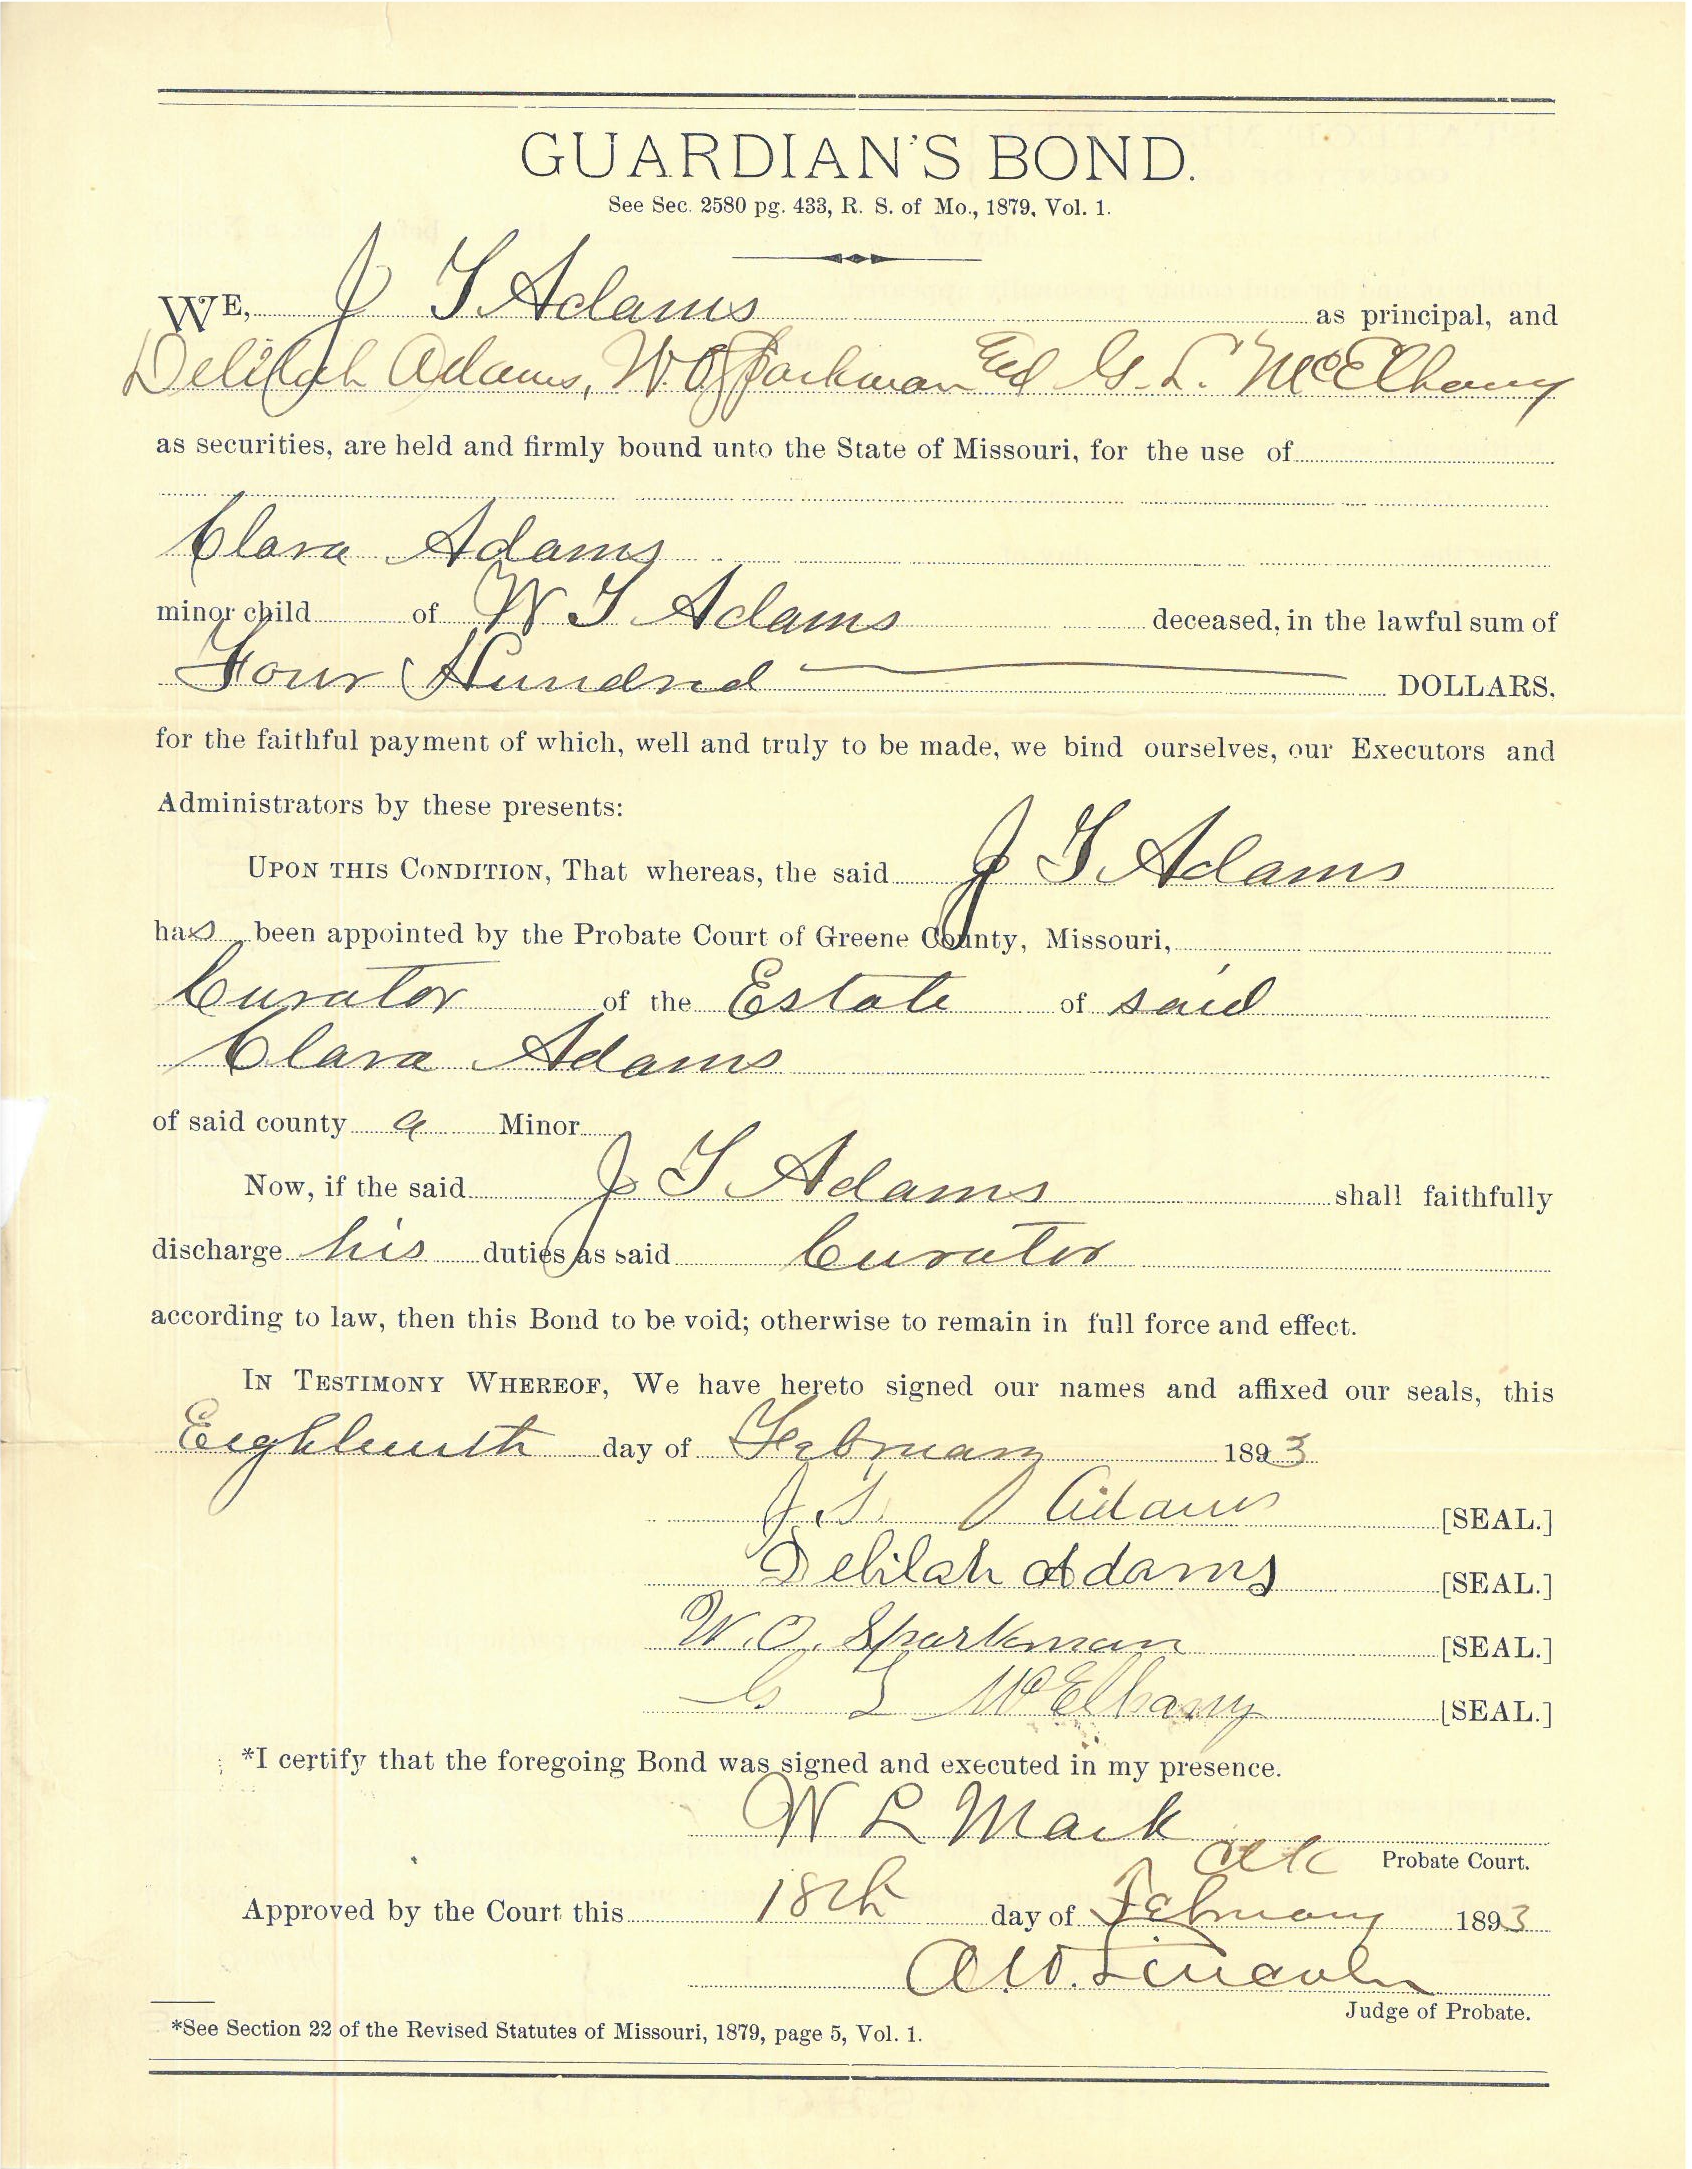 GUARDIAN'S BOND.
See Sec. 2580 pg. 433, R. S. of Mo., 1879, Vol. 1.
WE, J T Adams as principal, and
Delilah Adams, W. O. Sparkman and G. L. McElhany
as securities, are held and firmly bound unto the State of Missouri, for the use of
Clara Adams
minor child of W T Adams deceased, in the lawful sum of
Four Hundred DOLLARS.
for the faithful payment of which, well and truly to be made, we bind ourselves, our Executors and
Administrators by these presents:
UPON THIS CONDITION, That whereas, the said J T Adams
has been appointed by the Probate Court of Greene County, Missouri,
Curator of the Estate of said
Clara Adams
of said county a Minor
Now, if the said J T Adams shall faithfully
discharge his duties as said Curator
according to law, then this Bond to be void; otherwise to remain in full force and effect.
IN TESTIMONY WHEREOF, We have hereto signed our names and affixed our seals, this
Eighteenth day of February 1893
J. T. Adams [SEAL.]
Delilah Adams [SEAL.]
W. O. Sparkman [SEAL.]
G L McElhany [SEAL.]
*I certify that the foregoing Bond was signed and executed in my presence.
W L Mack
Clk Probate Court.
Approved by the Court this 18th day of February 1893
A. W. Lincoln
Judge of Probate.
*See Section 22 of the Revised Statutes of Missouri, 1879, page 5, Vol. 1.